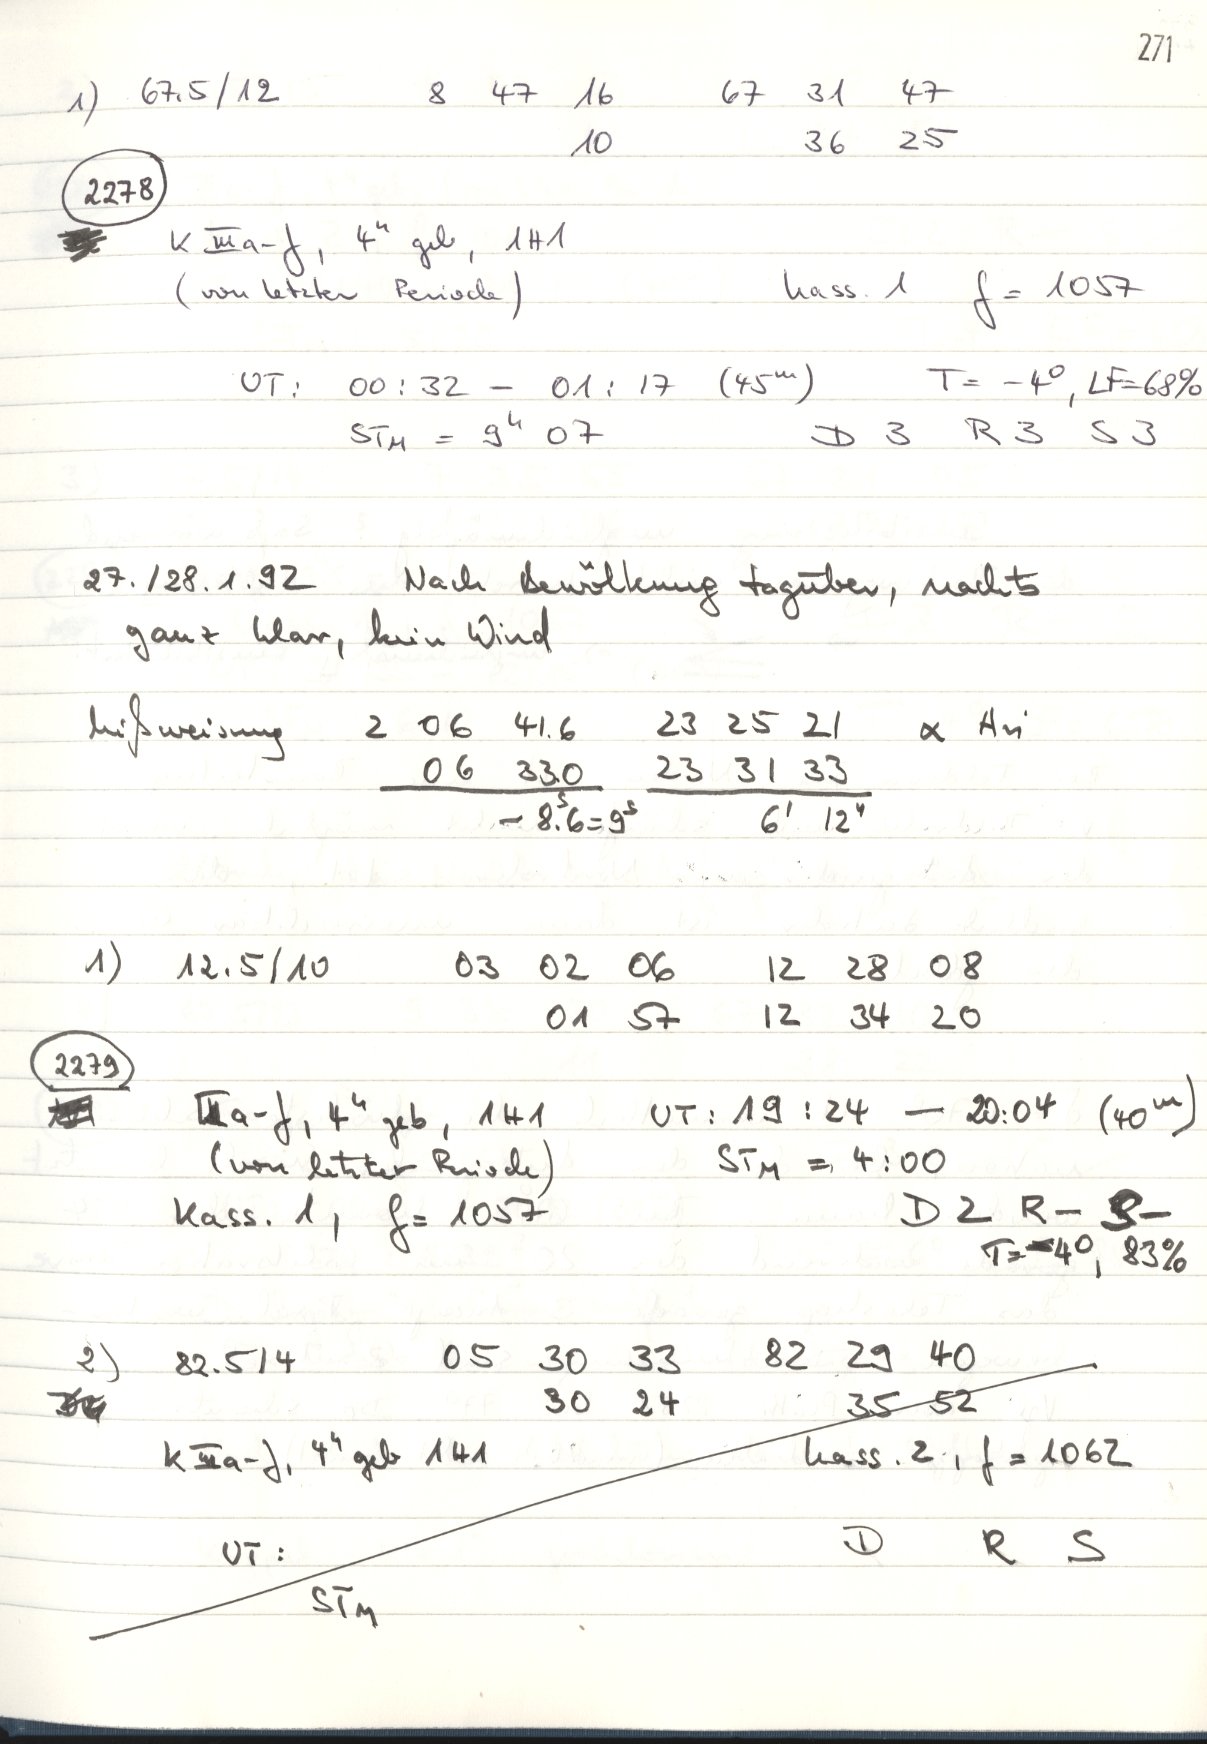 271
1) 67.5/12 8 47 16 67 31 47
10 36 25
2278
K IIIa-J, 4h geb, 1H1
(von letzter Periode) Kass. 1 f = 1057
UT: 00:32 - 01:17 (45m) T = -4°, LF=68%
STM = 9h 07 D 3 R 3 S 3
27./28.1.92 Nach Bewölkung tagüber, nachts
ganz klar, kein Wind
Mißweisung 2 06 41.6 23 25 21 α Ari
06 33.0 23 31 33
- 8.6s = 9s 6' 12"
1) 12.5/10 03 02 06 12 28 08
01 57 12 34 20
2279
IIIa-J, 4h geb, 1H1 UT: 19:24 — 20:04 (40m)
(von letzter Periode) STM = 4:00
Kass. 1, f = 1057 D 2 R - S -
T = -4°, 83%
2) 82.5/4 05 30 33 82 29 40
30 24 35 52
K IIIa-J, 4h geb 1H1 Kass. 2, f = 1062
UT: D R S
STM